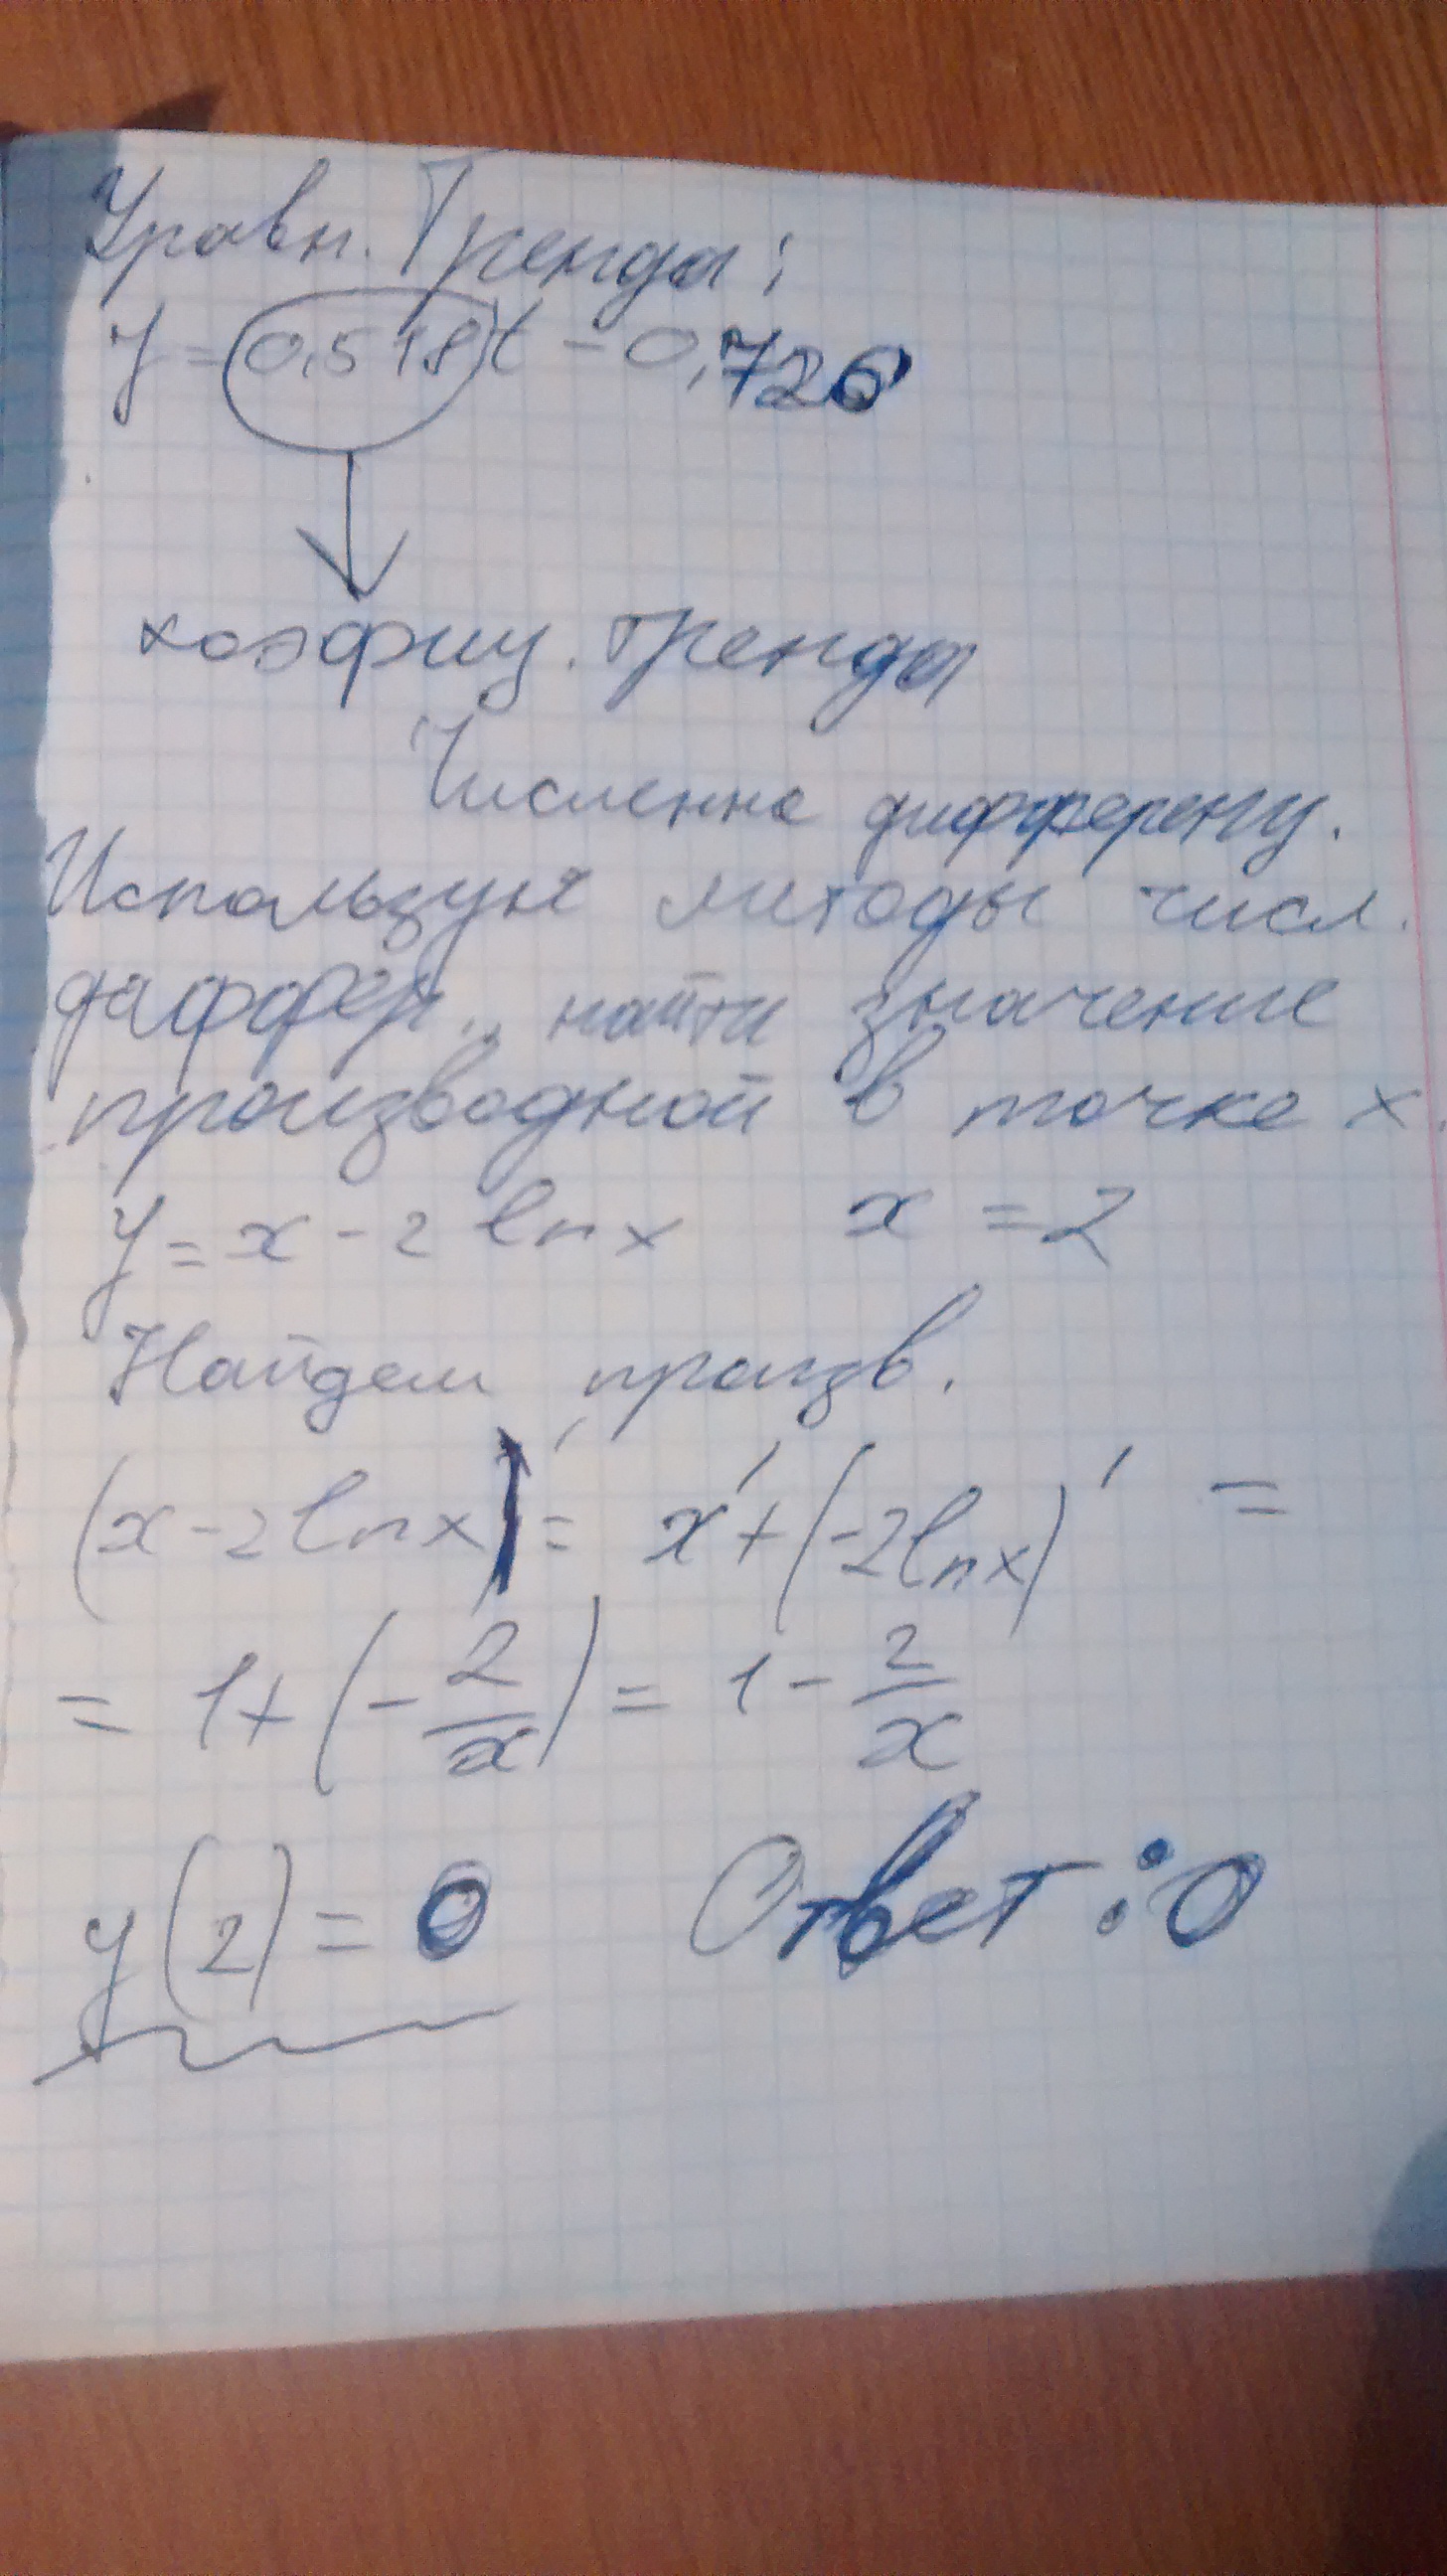 Уравн. Тренда:
y = 0,518 t - 0,726
коэфиц. тренда
Численне дифференц.
Используя методы числ.
диффер., найти значение
производной в точке x.
y = x - 2 ln x    x = 2
Найдем произв.
(x - 2 ln x)' = x' + (-2 ln x)' =
= 1 + (- 2/x) = 1 - 2/x
y(2) = 0    Ответ: 0